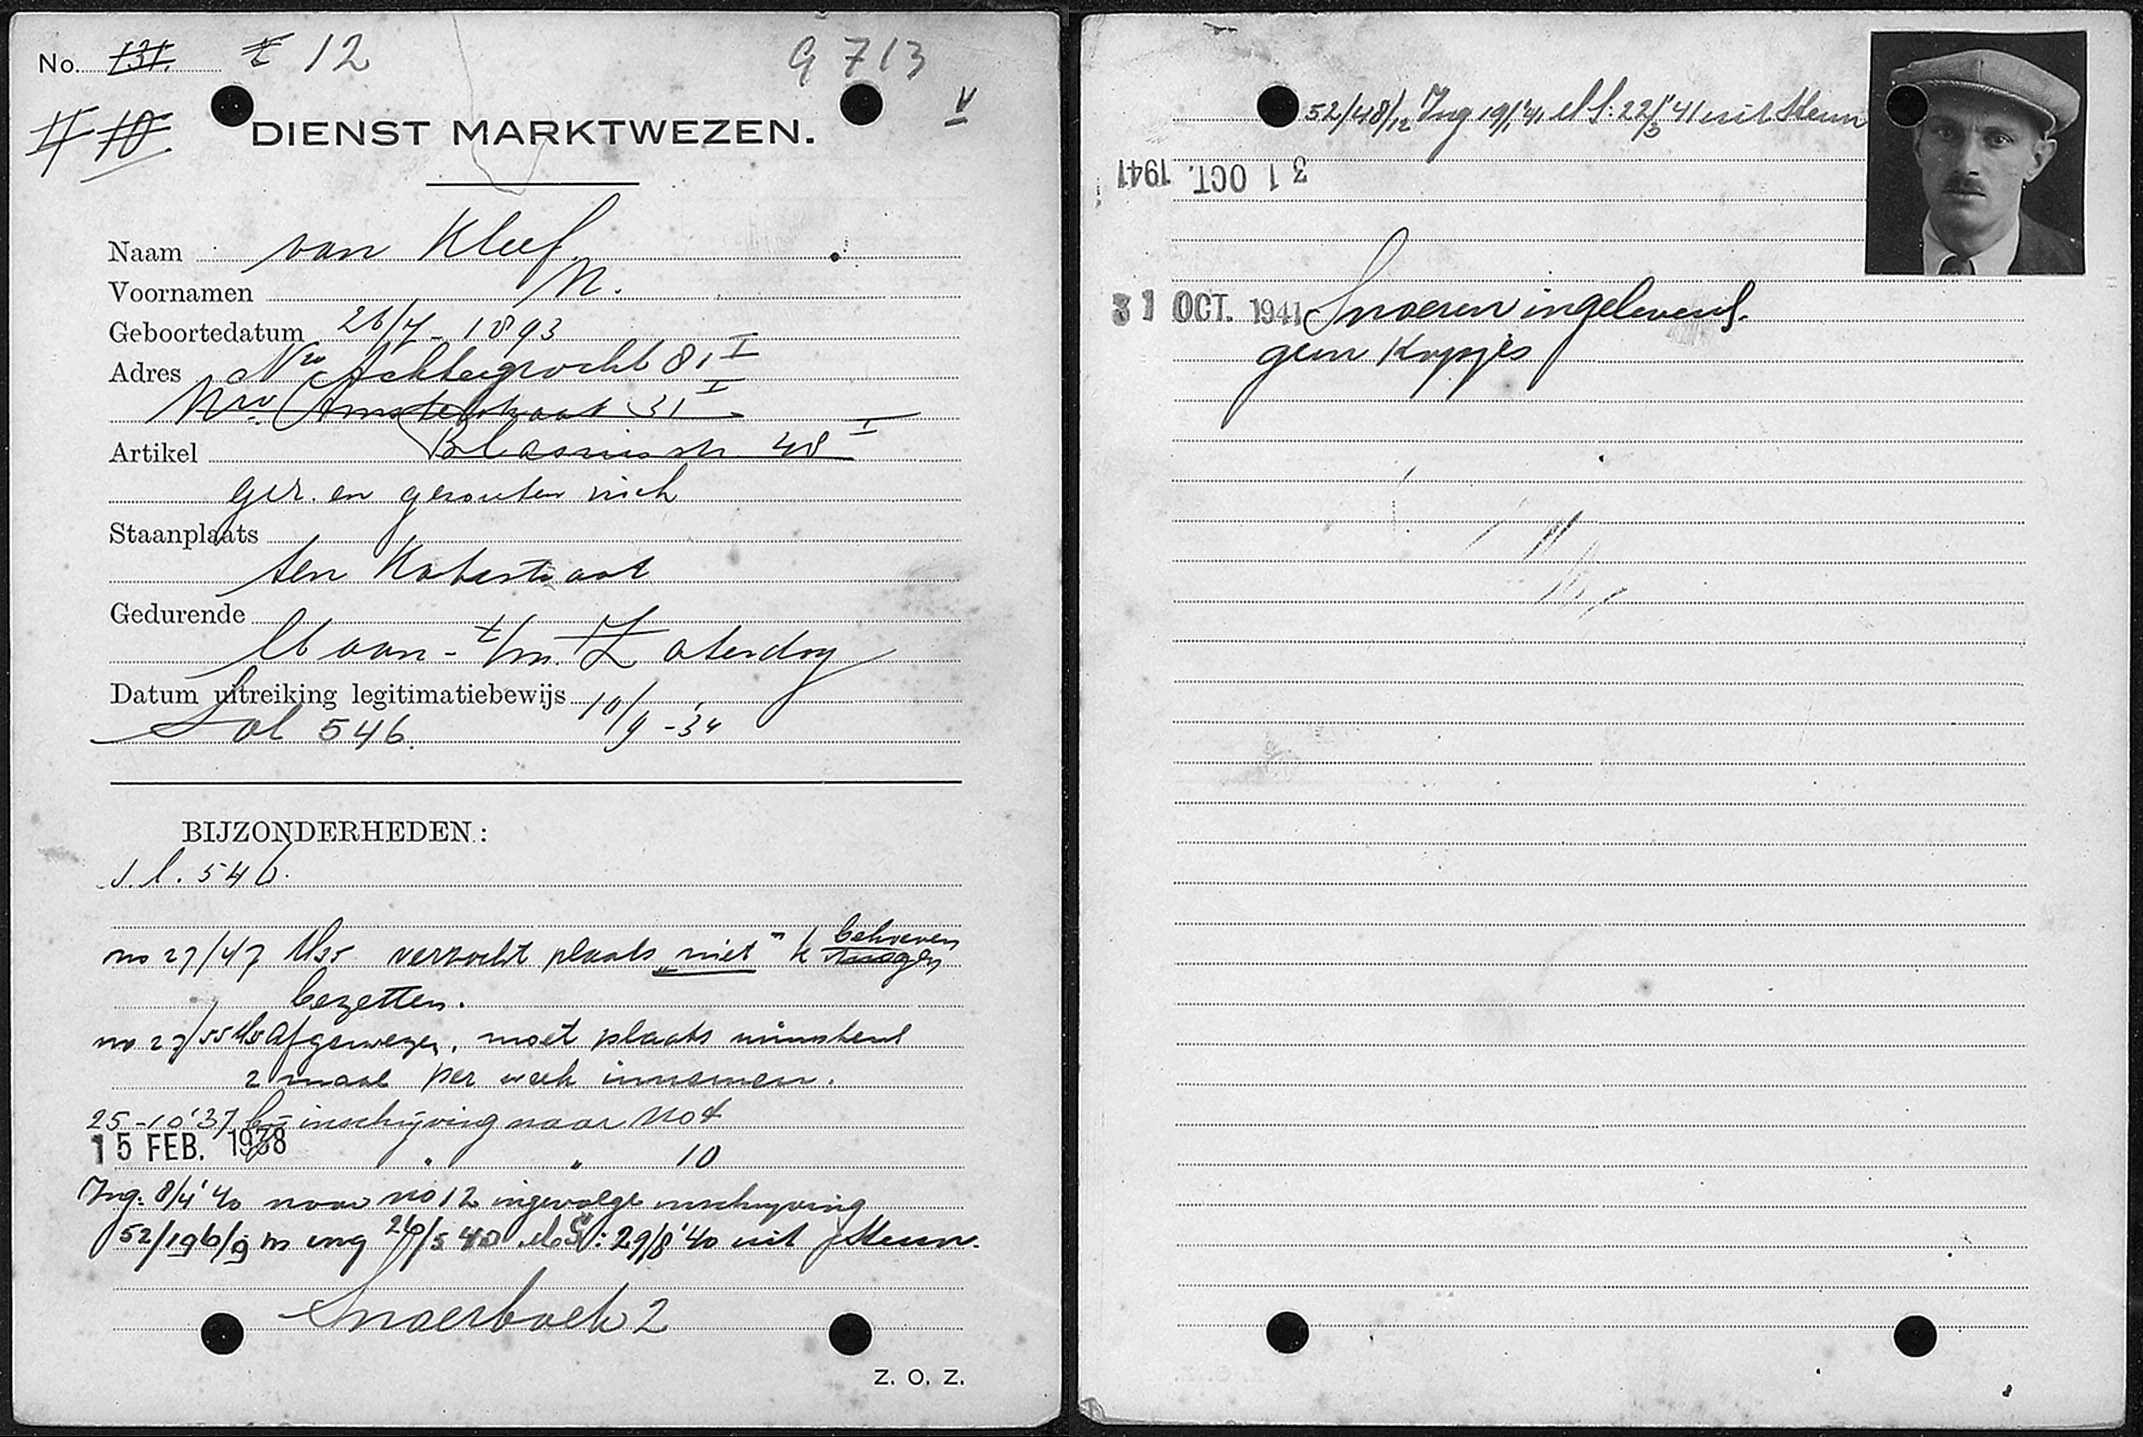 No. 131. 12 G 713
4 10. V
DIENST MARKTWEZEN.
Naam van Kleef
Voornamen N.
Geboortedatum 26/7 - 1893
Adres Nwe Achtergracht 81 I
Nwe Amstelstraat 31 I
Artikel Blasiusstr. 48 I
ger. en gezouten visch
Staanplaats
ten Katestraat
Gedurende
Maan- t/m. Zaterdag
Datum uitreiking legitimatiebewijs 10/9 - '34
Sol 546.
BIJZONDERHEDEN:
S.l. 546.
no 27/47 verzocht plaats „niet" te behoeven
bezetten.
no 27/55 afgewezen, moet plaats minstens
2 maal per week innemen.
25-10'37 bij inschrijving naar no 4
15 FEB. 1938 " " 10
Ing. 8/4 '40 naar no 12 ingevolge inschrijving
52/196/9 m ing 26/5 40 M S: 29/8 '40 uit Steun.
Snoerboek 2
Z. O. Z.
52/48/12 Ing 19/1 '41 M S: 22/3 '41 uit Steun
31 OCT. 1941
31 OCT. 1941 Snoeren ingeleverd.
geen Kopjes